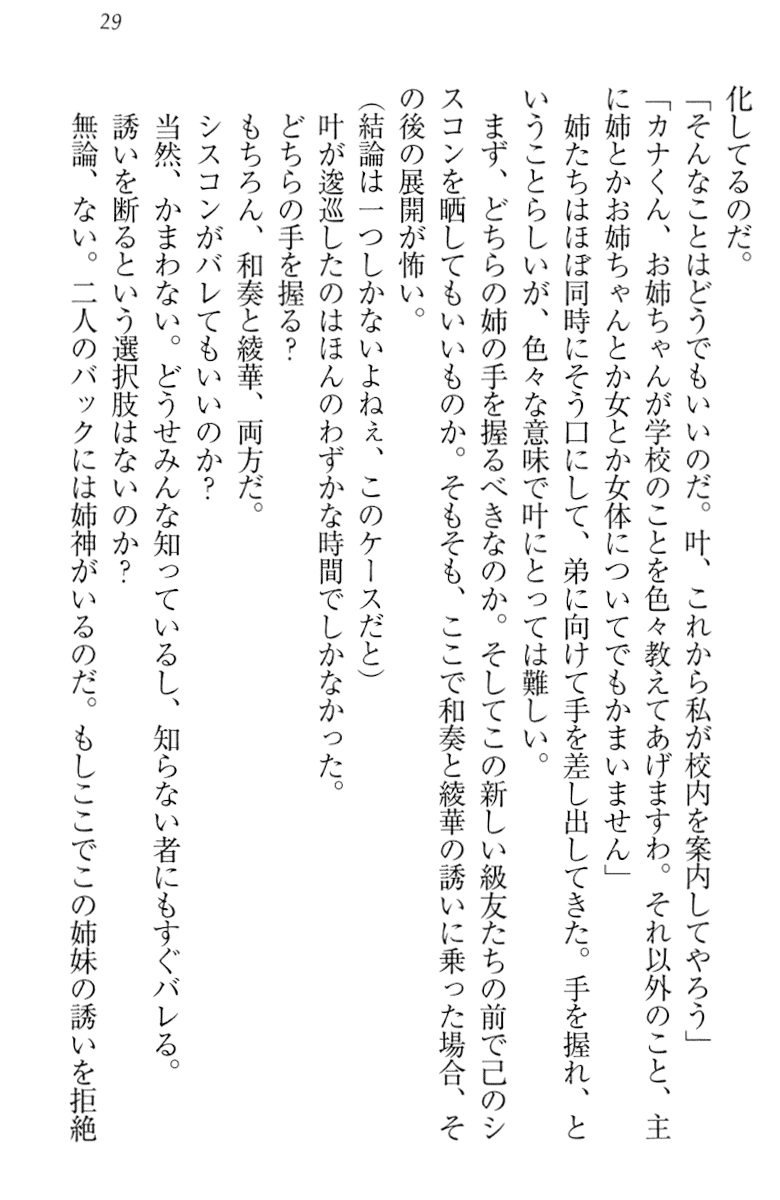 29
化してるのだ。
「そんなことはどうでもいいのだ。叶、これから私が校内を案内してやろう」
「カナくん、お姉ちゃんが学校のことを色々教えてあげますわ。それ以外のこと、主
に姉とかお姉ちゃんとか女とか女体についてでもかまいません」
姉たちはほぼ同時にそう口にして、弟に向けて手を差し出してきた。手を握れ、と
いうことらしいが、色々な意味で叶にとっては難しい。
まず、どちらの姉の手を握るべきなのか。そしてこの新しい級友たちの前で己のシ
スコンを晒してもいいものか。そもそも、ここで和奏と綾華の誘いに乗った場合、そ
の後の展開が怖い。
(結論は一つしかないよねぇ、このケースだと)
叶が逡巡したのはほんのわずかな時間でしかなかった。
どちらの手を握る?
もちろん、和奏と綾華、両方だ。
シスコンがバレてもいいのか?
当然、かまわない。どうせみんな知っているし、知らない者にもすぐバレる。
誘いを断るという選択肢はないのか?
無論、ない。二人のバックには姉神がいるのだ。もしここでこの姉妹の誘いを拒絶